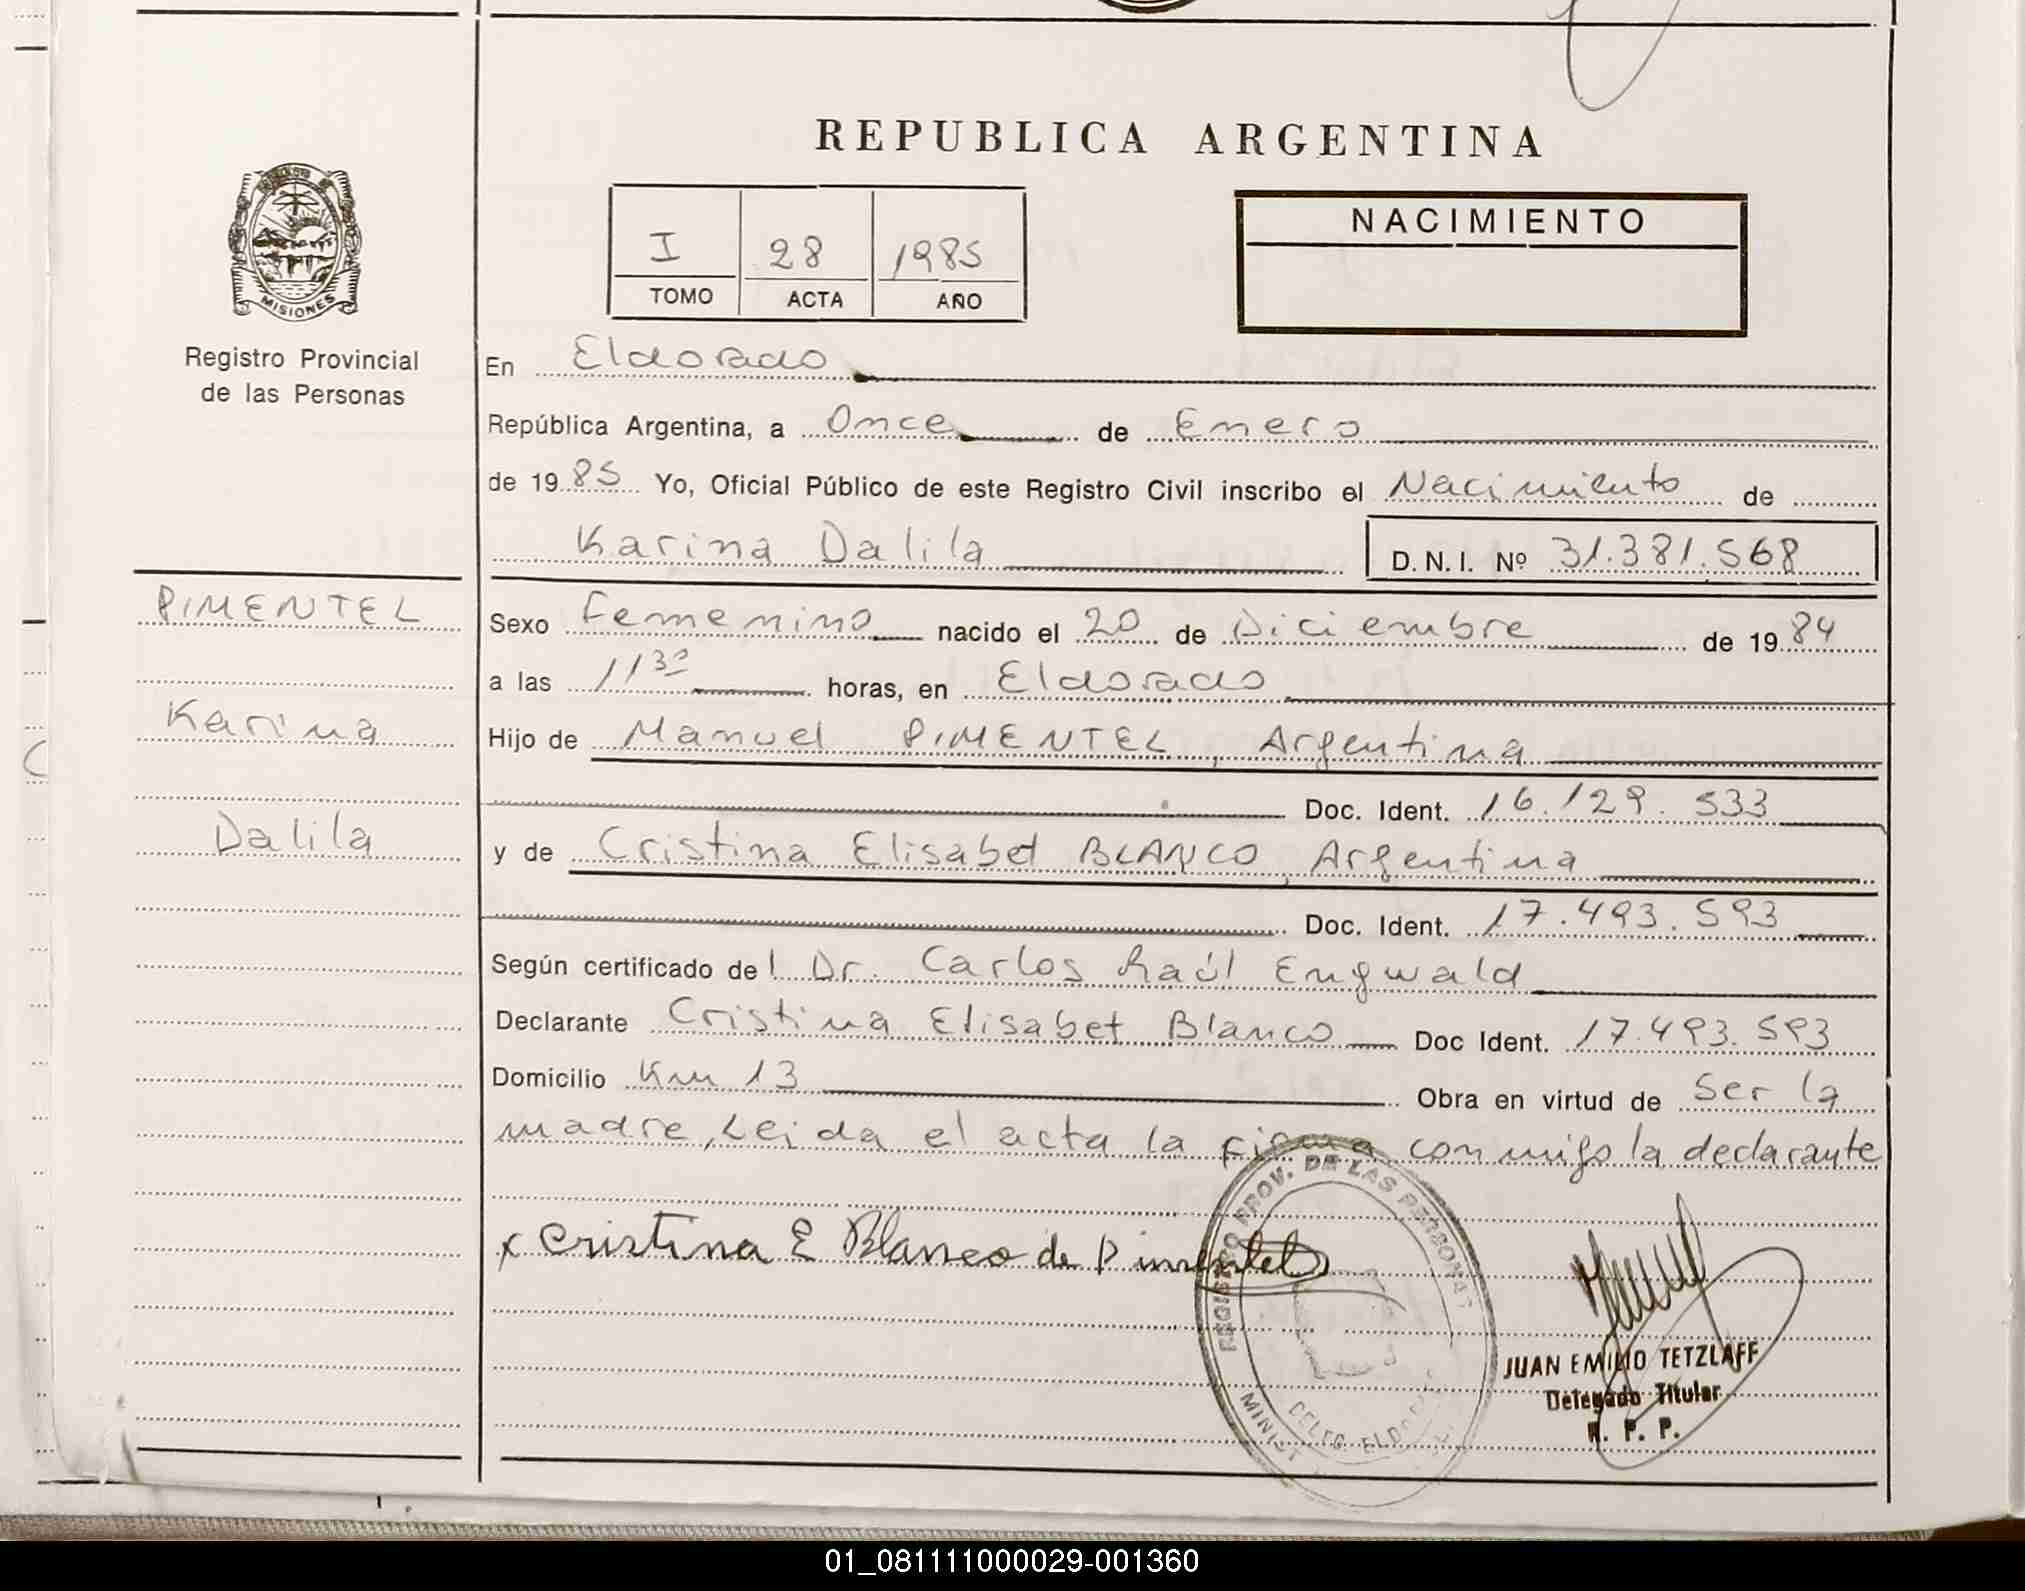 REPUBLICA ARGENTINA
MISIONES
Registro Provincial
de las Personas
I 28 1985
TOMO ACTA AÑO
NACIMIENTO
En Eldorado
República Argentina, a Once de Enero
de 1985 Yo, Oficial Público de este Registro Civil inscribo el Nacimiento de
Karina Dalila D.N.I. Nº 31.381.568
PIMENTEL
Karina
Dalila
Sexo Femenino nacido el 20 de Diciembre de 1984
a las 11³⁰ horas, en Eldorado
Hijo de Manuel PIMENTEL, Argentina
Doc. Ident. 16.129.533
y de Cristina Elisabet BLANCO, Argentina
Doc. Ident. 17.493.593
Según certificado del Dr. Carlos Raúl Engwald
Declarante Cristina Elisabet Blanco Doc Ident. 17.493.593
Domicilio Km 13 Obra en virtud de Ser la
madre, Leida el acta la firma conmigo la declarante
x Cristina E Blanco de Pimentel
REGISTRO PROV. DE LAS PERSONAS
JUAN EMILIO TETZLAFF
Delegado Titular
R. P. P.
01_081111000029-001360